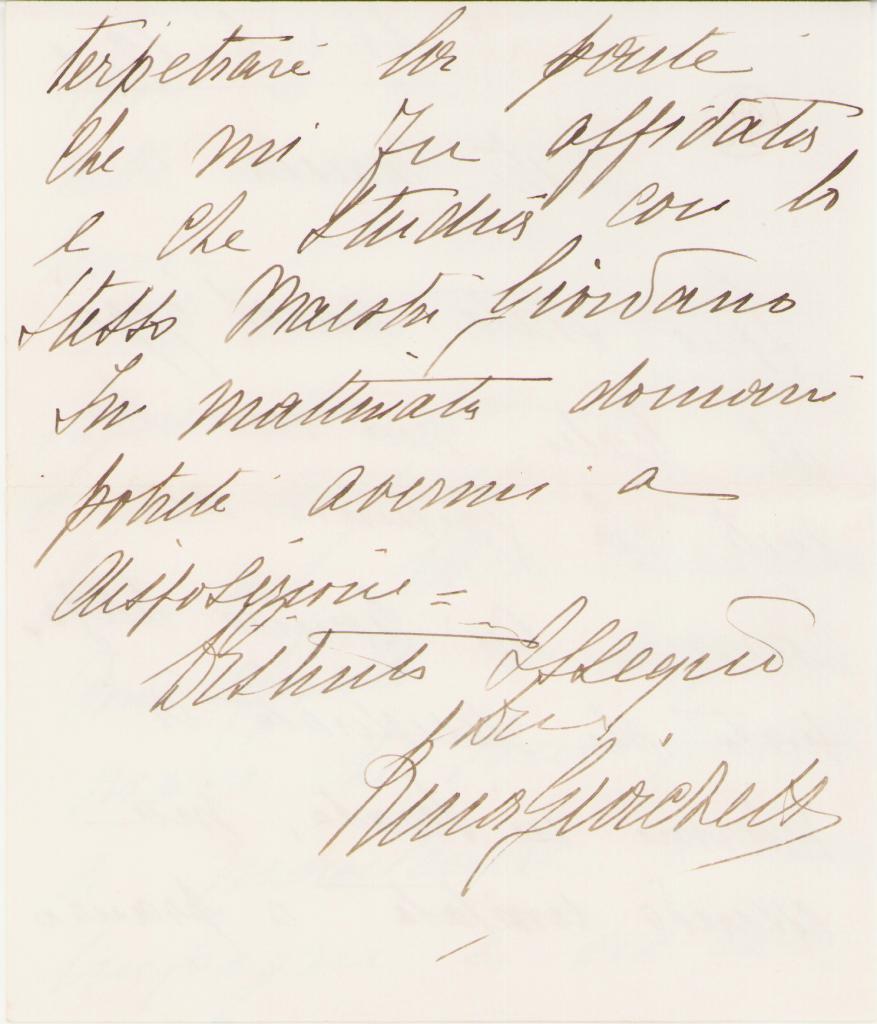 terpetrare la parte
che mi fu affidata
e che studiai con lo
stesso Maestro Giordano
In mattinata domani
potrete avermi a
disposizione =
Distinti Ossequi
Rina Giachetti